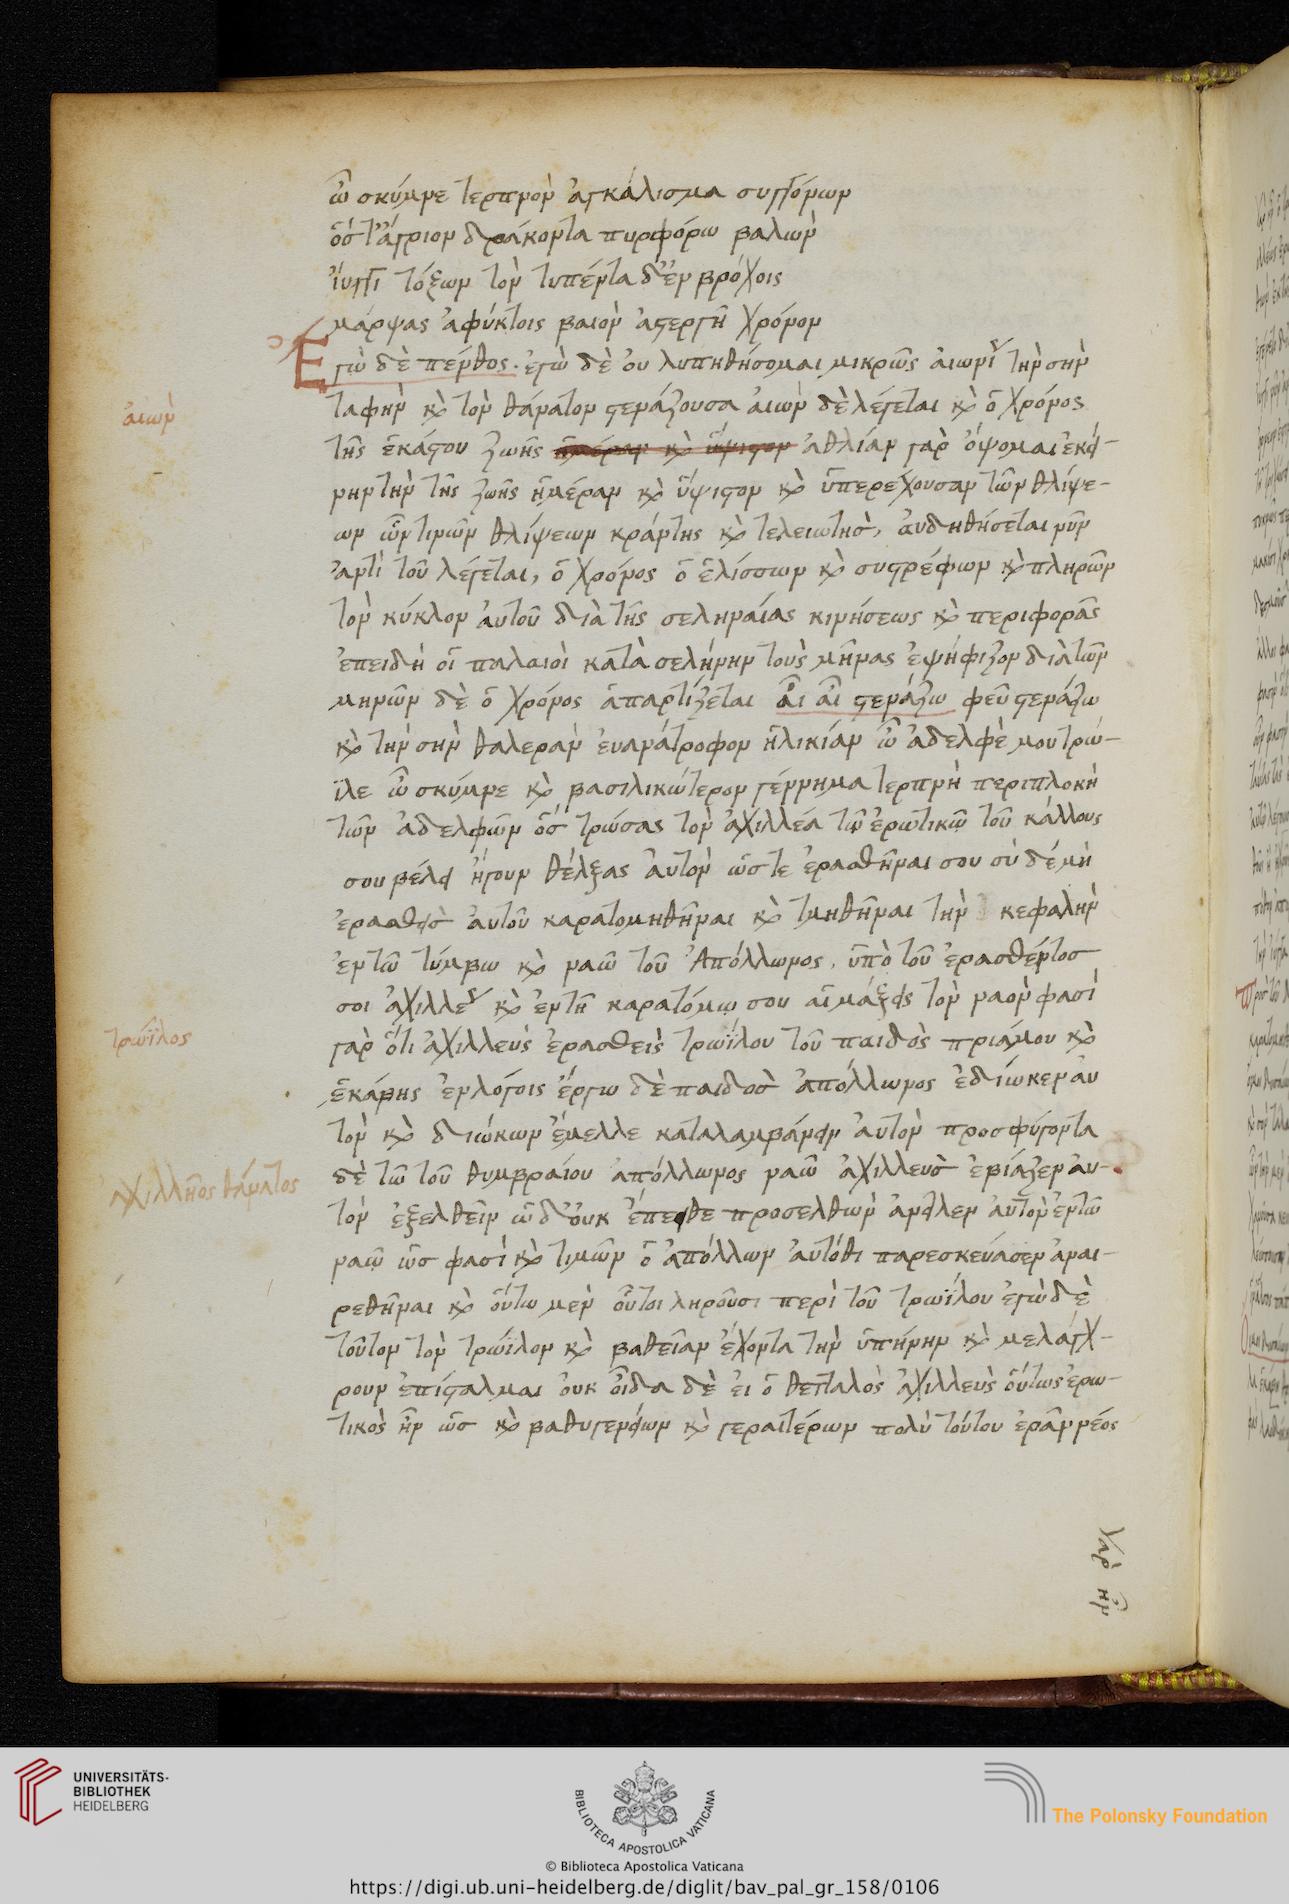 ὦ σκύμνε τερπνὸν ἀγκάλισμα συγγόνων
ὅς τ' ἄγριον δράκοντα πυρφόρω βαλὼν
ἴυγγι τόξων τὸν τυπέντα δ' ἐν βρόχοις
μάρψας ἀφύκτοις βαιὸν ἀστεργῆ χρόνον
Ἐγὼ δὲ πένθος· ἐγὼ δὲ οὐ λυπηθήσομαι μικρῶς αἰωνὶ τὴν σὴν
αἰών
ταφὴν καὶ τὸν θάνατον στενάζουσα αἰὼν δὲ λέγεται καὶ ὁ χρόνος
τῆς ἑκάστου ζωῆς ἡμέραν καὶ ὕψιστον ἀθλίαν γὰρ ὄψομαι ἐκεί-
νην τὴν τῆς ζωῆς ἡμέραν καὶ ὕψιστον καὶ ὑπερέχουσαν τῶν θλίψε-
ων ὧν τινῶν θλίψεων κράντης καὶ τελειωτὴς, αὐδηθήσεται νῦν
ἀντὶ τοῦ λέγεται, ὁ χρόνος ὁ ἑλίσσων καὶ συστρέφων καὶ πληρῶν
τὸν κύκλον αὐτοῦ διὰ τῆς σεληναίας κινήσεως καὶ περιφορᾶς
ἐπειδὴ οἱ παλαιοὶ κατὰ σελήνην τοὺς μῆνας ἐψήφιζον διὰ τῶν
μηνῶν δὲ ὁ χρόνος ἀπαρτίζεται αἲ αἲ στενάζω φεῦ στενάζω
καὶ τὴν σὴν θαλερὰν εὐανάτροφον ἡλικίαν ὦ ἀδελφέ μου τρω-
ΐλε ὦ σκύμνε καὶ βασιλικώτερον γέννημα τερπνὴ περιπλοκὴ
τῶν ἀδελφῶν ὃς τρώσας τὸν ἀχιλλέα τῷ ἐρωτικῷ τοῦ κάλλους
σου βέλει ἤγουν θέλξας αὐτὸν ὥστε ἐρασθῆναι σου σὺ δέ μὴ
ἐρασθεὶς αὐτοῦ καρατομηθῆναι καὶ τμηθῆναι τὴν κεφαλὴν
ἐν τῶ τύμβω καὶ ναῶ τοῦ Ἀπόλλωνος, ὑπὸ τοῦ ἐρασθέντος
σοι ἀχιλλέως καὶ ἐν τῆ καρατόμω σου αἱμάξεις τὸν ναὸν φασὶ
τρωΐλος
γὰρ ὅτι ἀχιλλεὺς ἐρασθεὶς τρωΐλου τοῦ παιδὸς πριάμου καὶ
ἑκάβης ἐν λόγοις ἔργω δὲ παιδὸς ἀπόλλωνος ἐδίωκεν αὐ
τὸν καὶ διώκων ἔμελλε καταλαμβάνειν αὐτὸν προσφύγοντα
ἀχιλλῆος θάνατος
δὲ τῶ τοῦ θυμβραίου ἀπόλλωνος ναῶ ἀχιλλεὺς ἐβίαζεν αὐ-
τὸν ἐξελθεῖν ὡς δ' οὐκ ἔπειθε προσελθὼν ἀνεῖλεν αὐτὸν ἐν τῶ
ναῶ ὡς φασὶ καὶ τιμῶν ὁ ἀπόλλων αὐτόθι παρεσκεύασεν ἀναι-
ρεθῆναι καὶ οὕτω μὲν οὗτοι ληροῦσι περὶ τοῦ τρωΐλου ἐγὼ δὲ
τοῦτον τὸν τρώϊλον καὶ βαθεῖαν ἔχοντα τὴν ὑπήνην καὶ μελάγχ-
ρουν ἐπίσταλμαι οὐκ οἶδα δὲ εἰ ὁ θετταλὸς ἀχιλλεὺς οὕτως ἐρω-
τικὸς ἦν ὡς καὶ βαθυγενείων καὶ γεραιτέρων πολὺ τούτου ἐρᾶν νέος
γὰρ ἦν
UNIVERSITÄTS-
BIBLIOTHEK
HEIDELBERG
BIBLIOTECA APOSTOLICA VATICANA
The Polonsky Foundation
© Biblioteca Apostolica Vaticana
https://digi.ub.uni-heidelberg.de/diglit/bav_pal_gr_158/0106